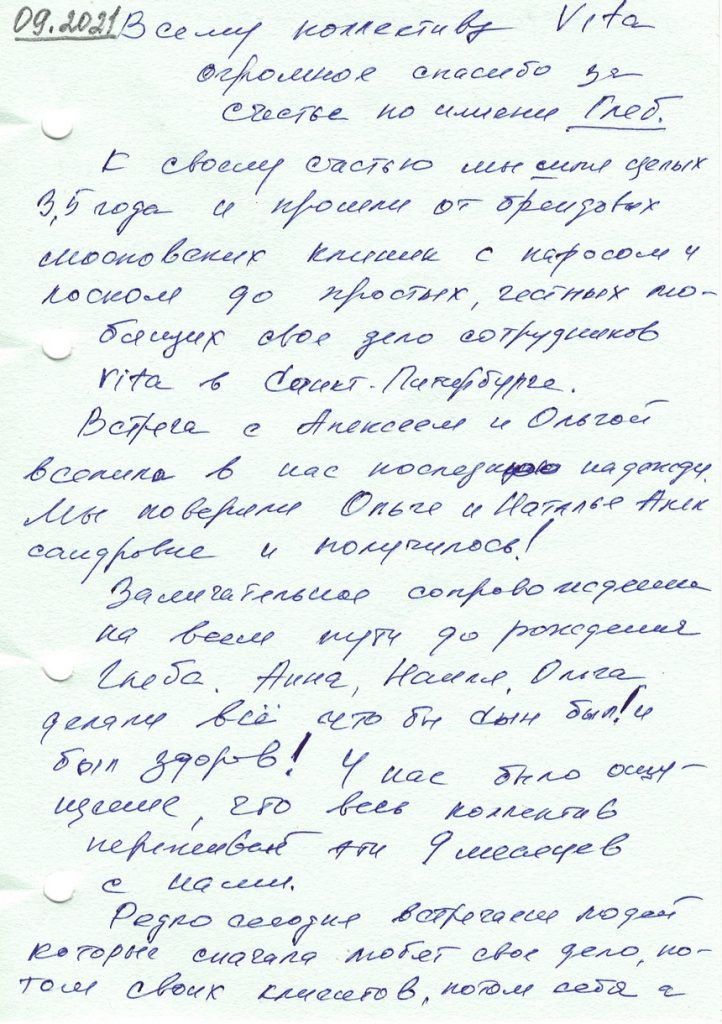 09.2021 Всему коллективу Vita
огромное спасибо за
счастье по имени Глеб.
К своему счастью мы шли целых
3,5 года и прошли от брендовых
московских клиник с пафосом и
лоском до простых, честных лю-
бящих свое дело сотрудников
Vita в Санкт-Петербурге.
Встреча с Алексеем и Ольгой
вселила в нас последнюю надежду.
Мы поверили Ольге и Наталье Алек
сандровне и получилось!
Замечательное сопровождение
на всем пути до рождения
Глеба. Анна, Наиля, Ольга
делали всё что бы сын был! и
был здоров! У нас было ощу-
щение, что весь коллектив
переживает эти 9 месяцев
с нами.
Редко сегодня встречаем людей
которые сначала любят свое дело, по-
том своих клиентов, потом себя а